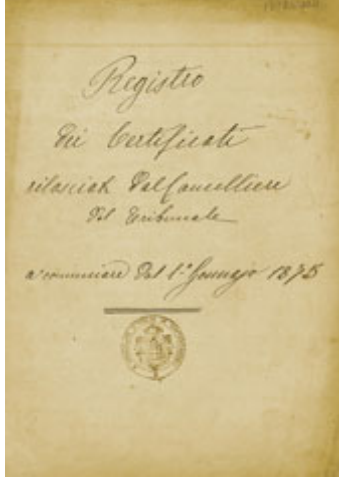 Registro
dei Certificati
rilasciati Dal Cancelliere
Del Tribunale
a cominciare Dal 1.° Gennajo 1875